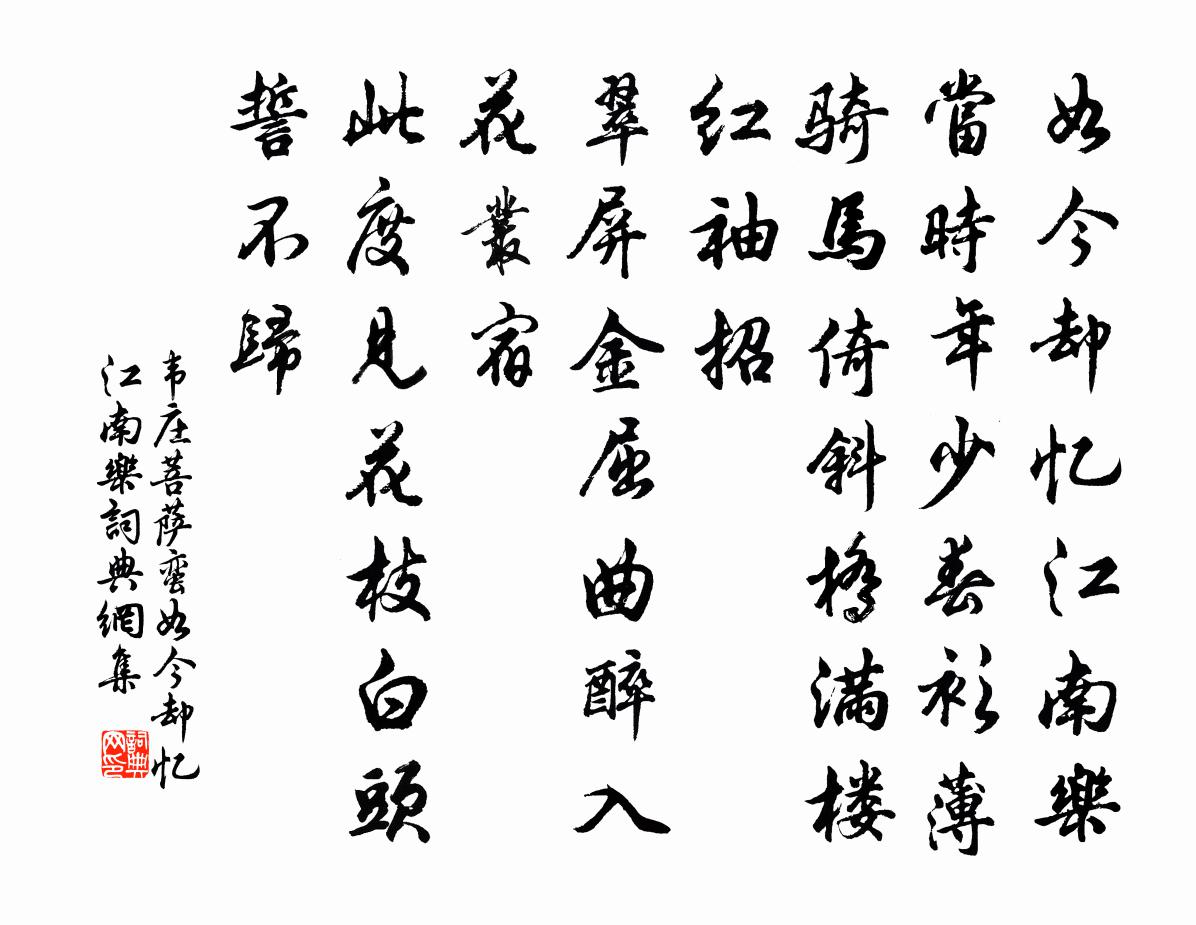 如今却忆江南樂
當時年少春衫薄
騎馬倚斜橋滿楼
红袖招
翠屏金屈曲醉入
花叢宿
此度見花枝白頭
誓不歸
韦庄菩萨蛮如今却忆
江南樂詞典網集
詞典
网印